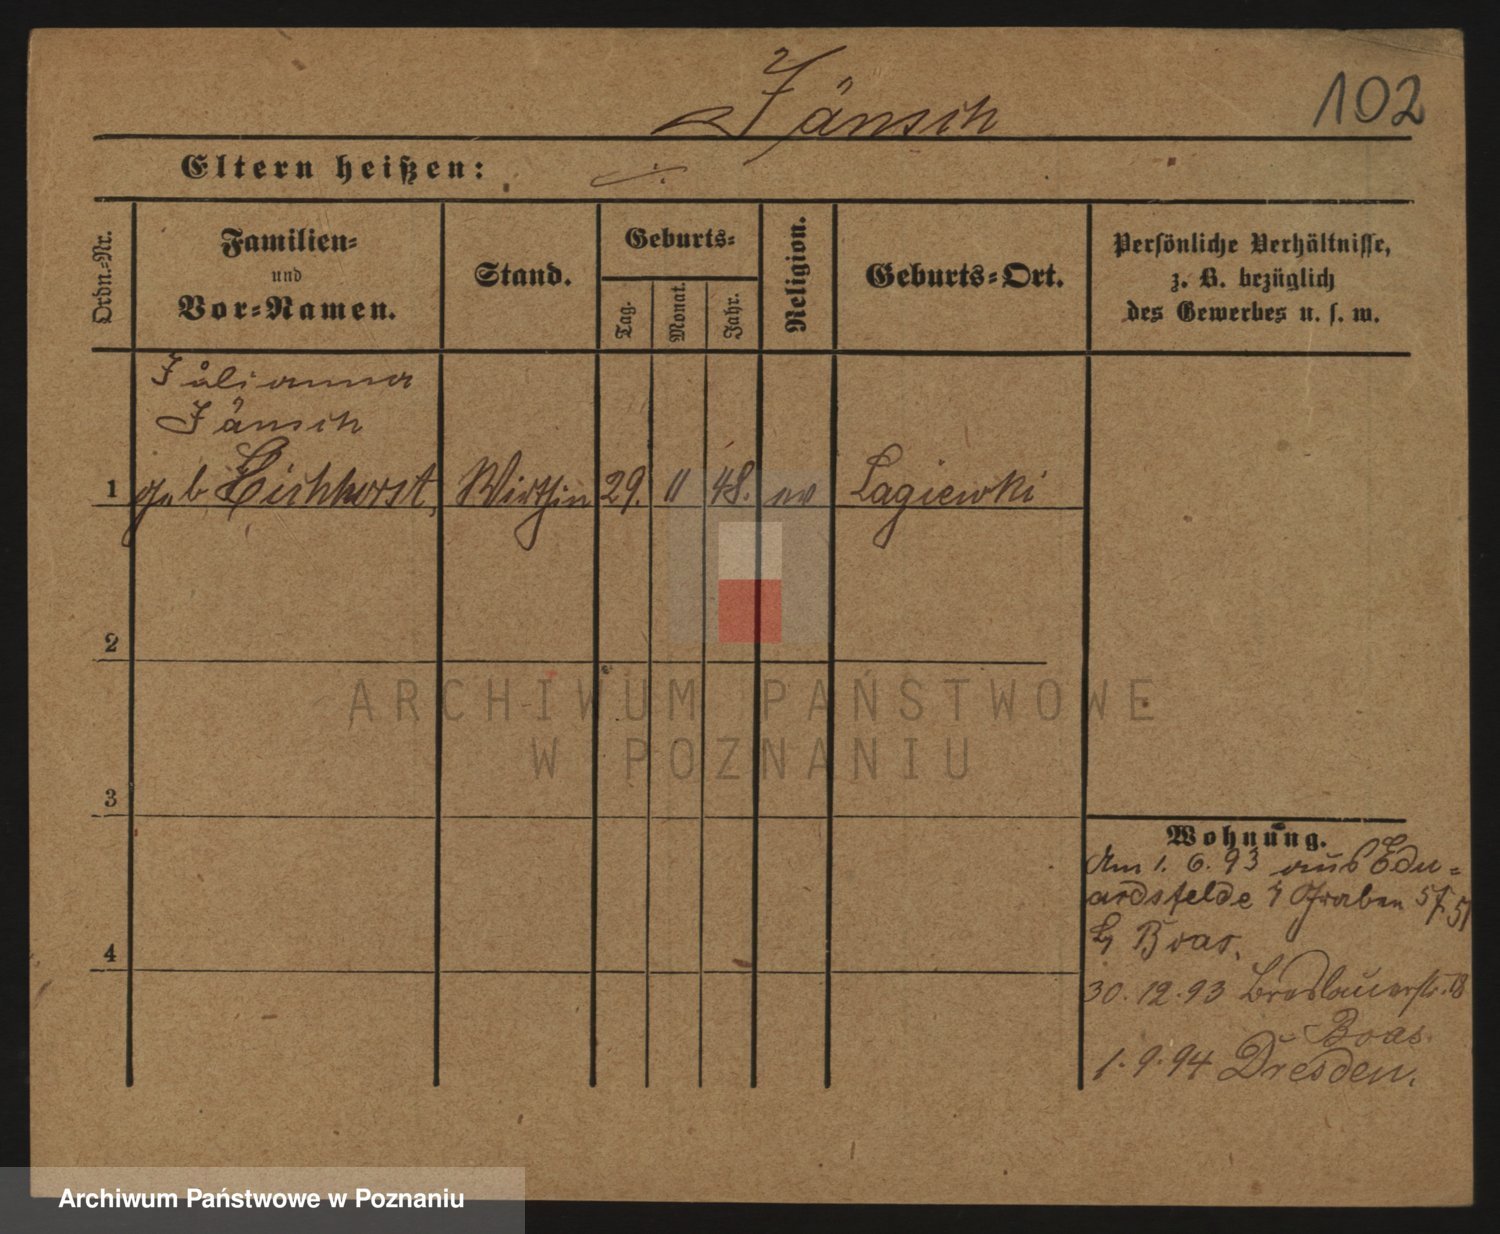 Jänsch
102
Eltern heißen:
Ordn.-Nr.
Familien-
und
Vor-Namen.
Stand.
Geburts-
Tag.
Monat.
Jahr.
Religion.
Geburts-Ort.
Persönliche Verhältnisse,
z. B. bezüglich
des Gewerbes u. s. w.
Julianna
Jänsch
1 geb Eichhorst, Wirthin 29. 11 48. ev Lagiewki
2
3
4
Wohnung.
Am 1. 6. 93 aus Edu-
ardsfelde Graben
Boas.
30. 12. 93 Breslauerstr. 18
Boas.
1. 9. 94 Dresden.
ARCHIWUM PAŃSTWOWE
W POZNANIU
Archiwum Państwowe w Poznaniu